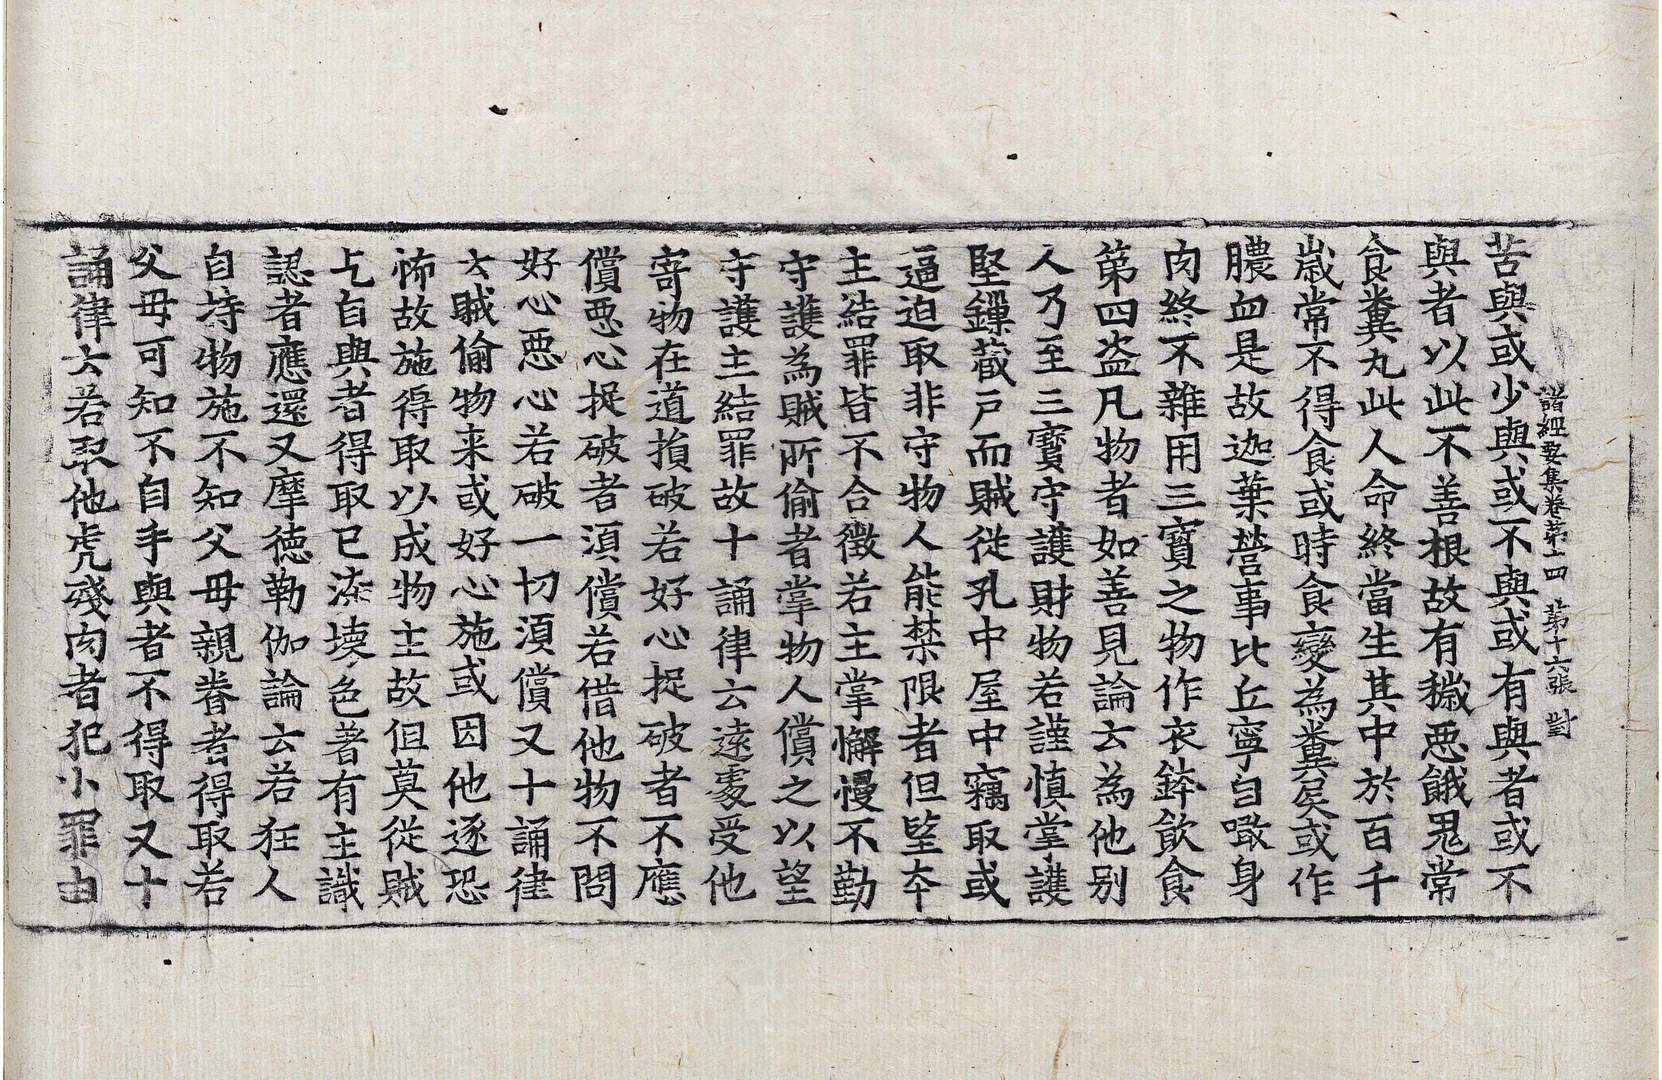 諸經要集卷第十四 第十六張 對
苦與或少與或不與或有與者或不
與者以此不善根故有穢惡餓鬼常
食糞丸此人命終當生其中於百千
歲常不得食或時食變為糞屎或作
膿血是故迦葉營事比丘寧自噉身
肉終不雜用三寶之物作衣鉢飲食
第四盜凡物者如善見論云為他別
人乃至三寶守護財物若謹慎掌護
堅鏁蔵戶而賊從孔中屋中竊取或
逼迫取非守物人能禁限者但望本
主結罪皆不合徵若主掌懈慢不勤
守護為賊所偷者掌物人償之以望
守護主結罪故十誦律云遠處受他
寄物在道損破若好心捉破者不應
償惡心捉破者須償若借他物不問
好心惡心若破一切須償又十誦律
云賊偷物来或好心施或因他逐恐
怖故施得取以成物主故但莫從賊
乞自與者得取已染壞色著有主識
認者應還又摩德勒伽論云若狂人
自持物施不知父母親眷者得取若
父母可知不自手與者不得取又十
誦律云若取他虎殘肉者犯小罪由